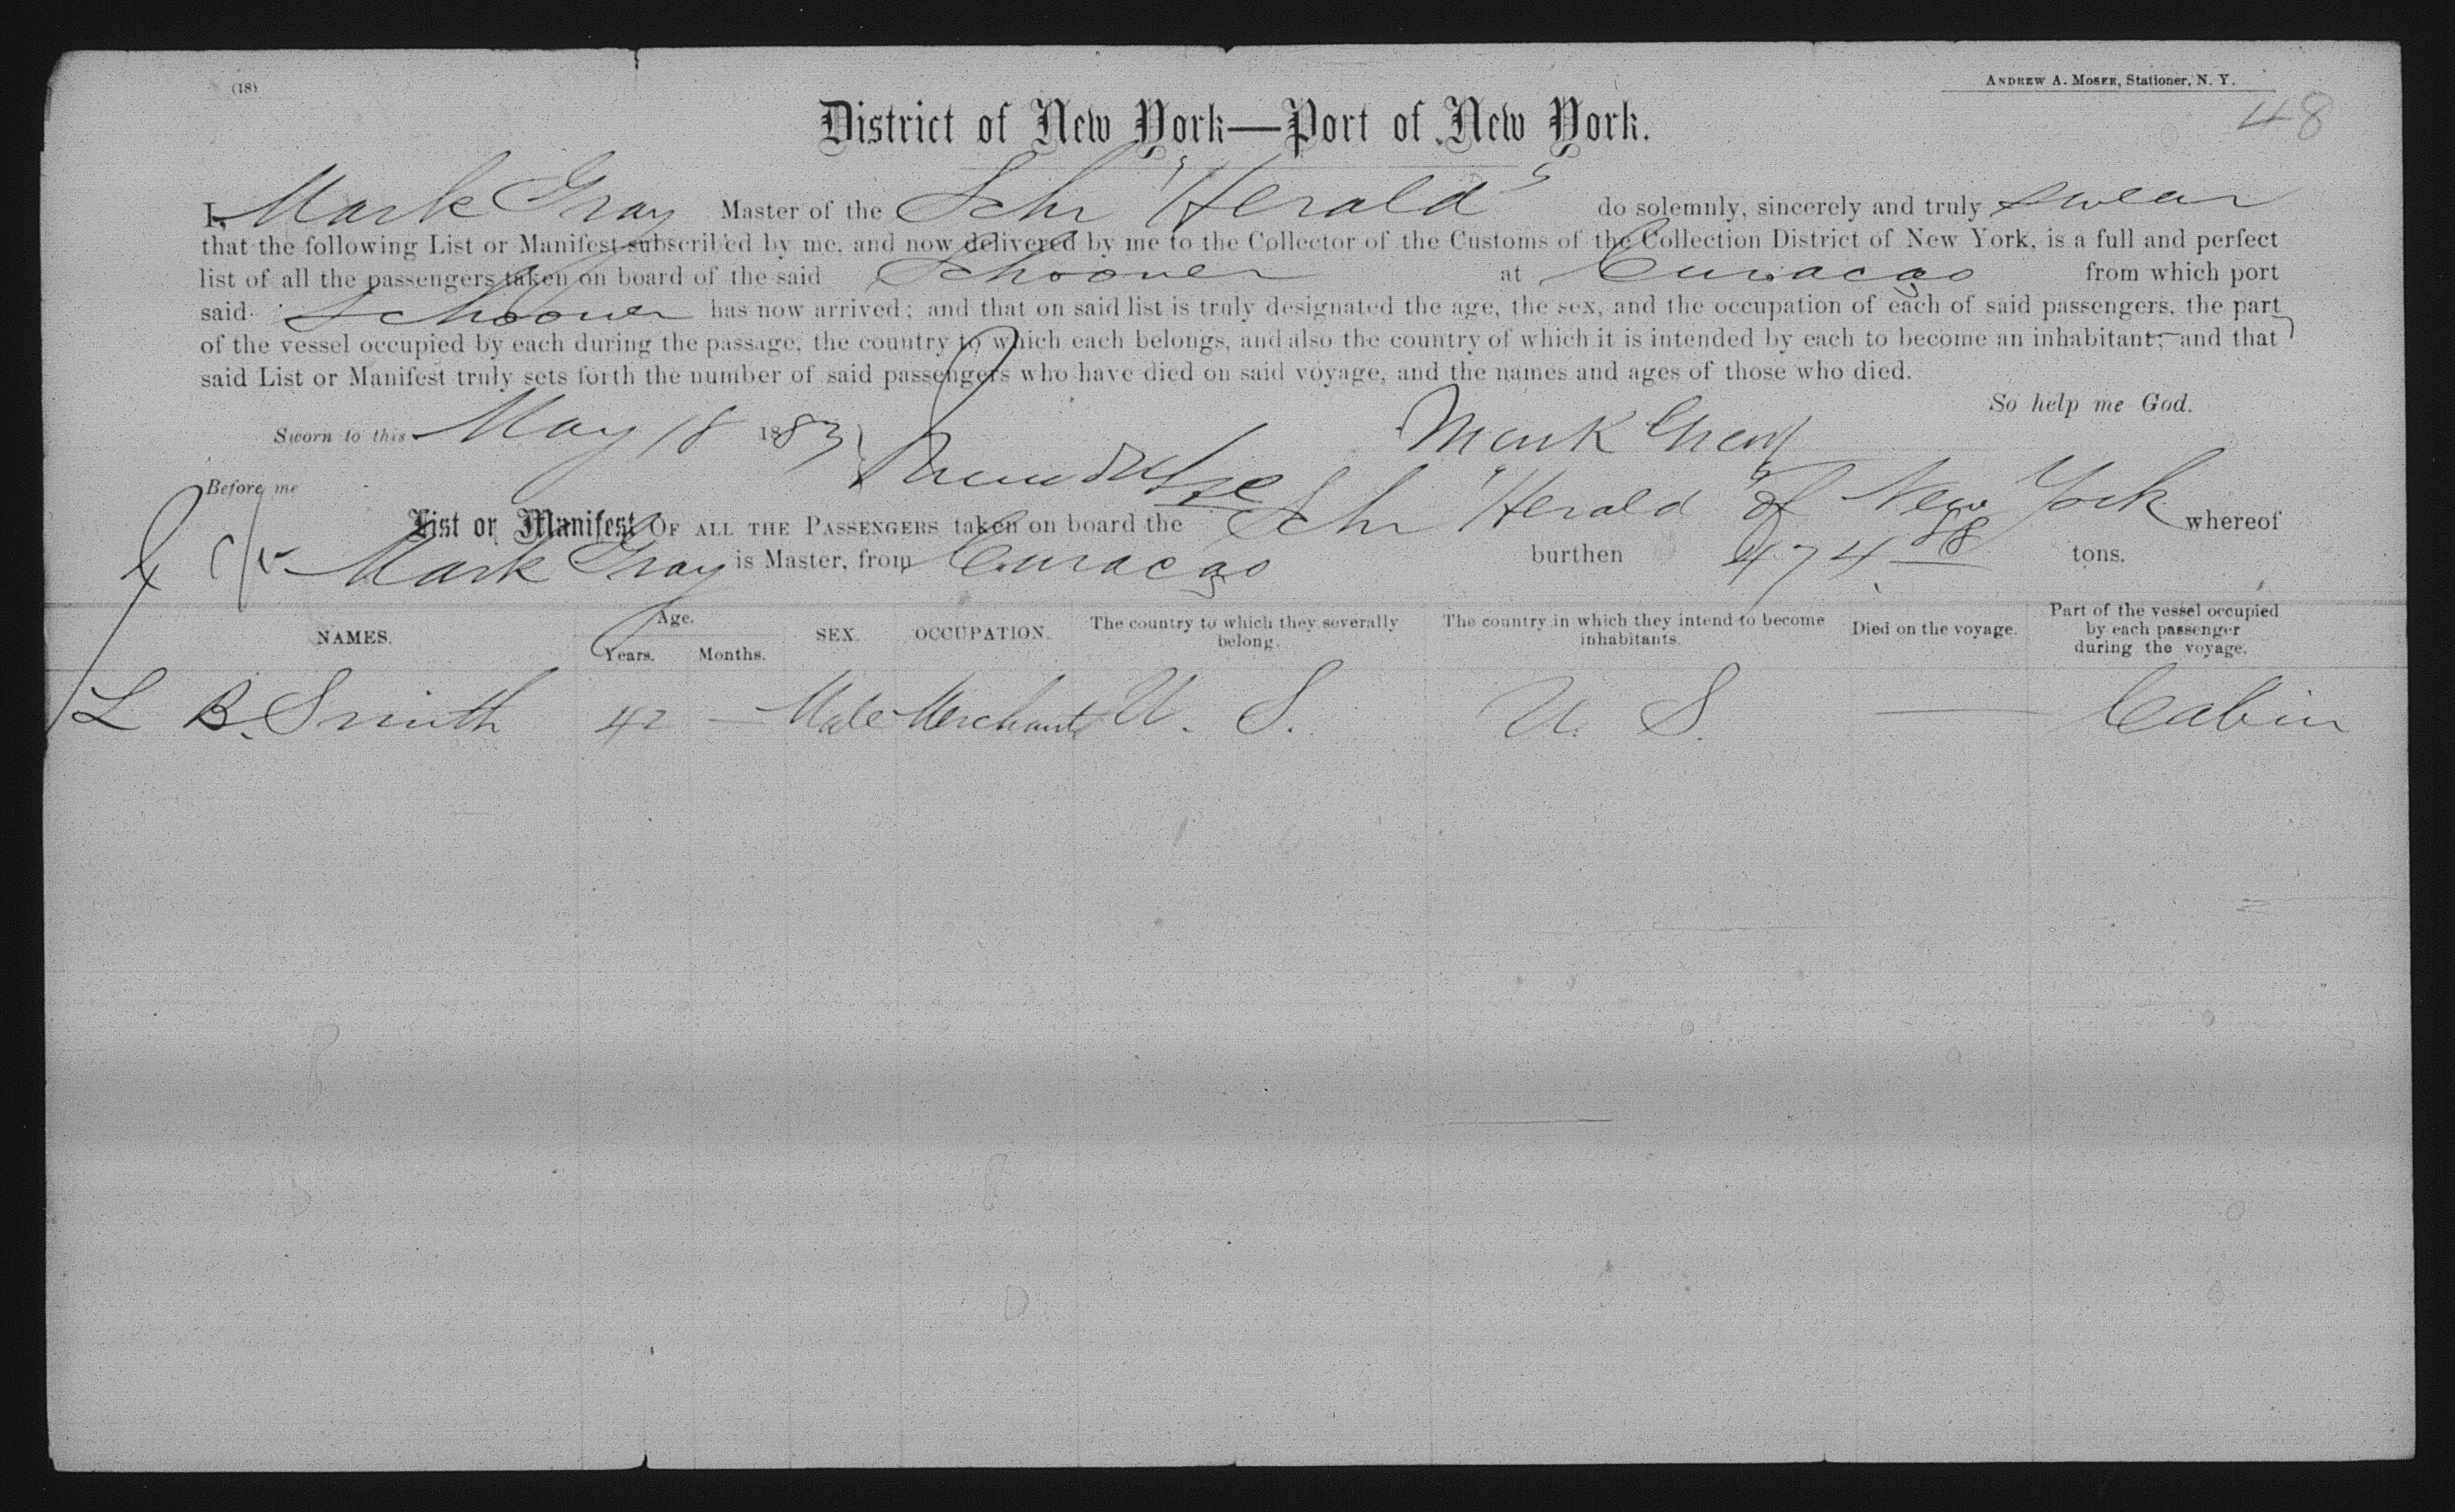 (18)
ANDREW A. MOSER, Stationer, N. Y.
48
District of New York—Port of New York.
I, Mark Gray Master of the Schr "Herald" do solemnly, sincerely and truly swear
that the following List or Manifest subscribed by me, and now delivered by me to the Collector of the Customs of the Collection District of New York, is a full and perfect
list of all the passengers taken on board of the said Schooner at Curaçao from which port
said Schooner has now arrived; and that on said list is truly designated the age, the sex, and the occupation of each of said passengers, the part
of the vessel occupied by each during the passage, the country to which each belongs, and also the country of which it is intended by each to become an inhabitant; and that
said List or Manifest truly sets forth the number of said passengers who have died on said voyage, and the names and ages of those who died.
So help me God.
Sworn to this May 18 1883 Mark Gray
Before me
List or Manifest OF ALL THE PASSENGERS taken on board the Schr "Herald" of New York whereof
Mark Gray is Master, from Curaçao burthen 474 88 tons.
NAMES. Age. Years. Months. SEX. OCCUPATION. The country to which they severally belong. The country in which they intend to become inhabitants. Died on the voyage. Part of the vessel occupied by each passenger during the voyage.
L B. Smith 42 — Male Merchant U. S. U. S. — Cabin